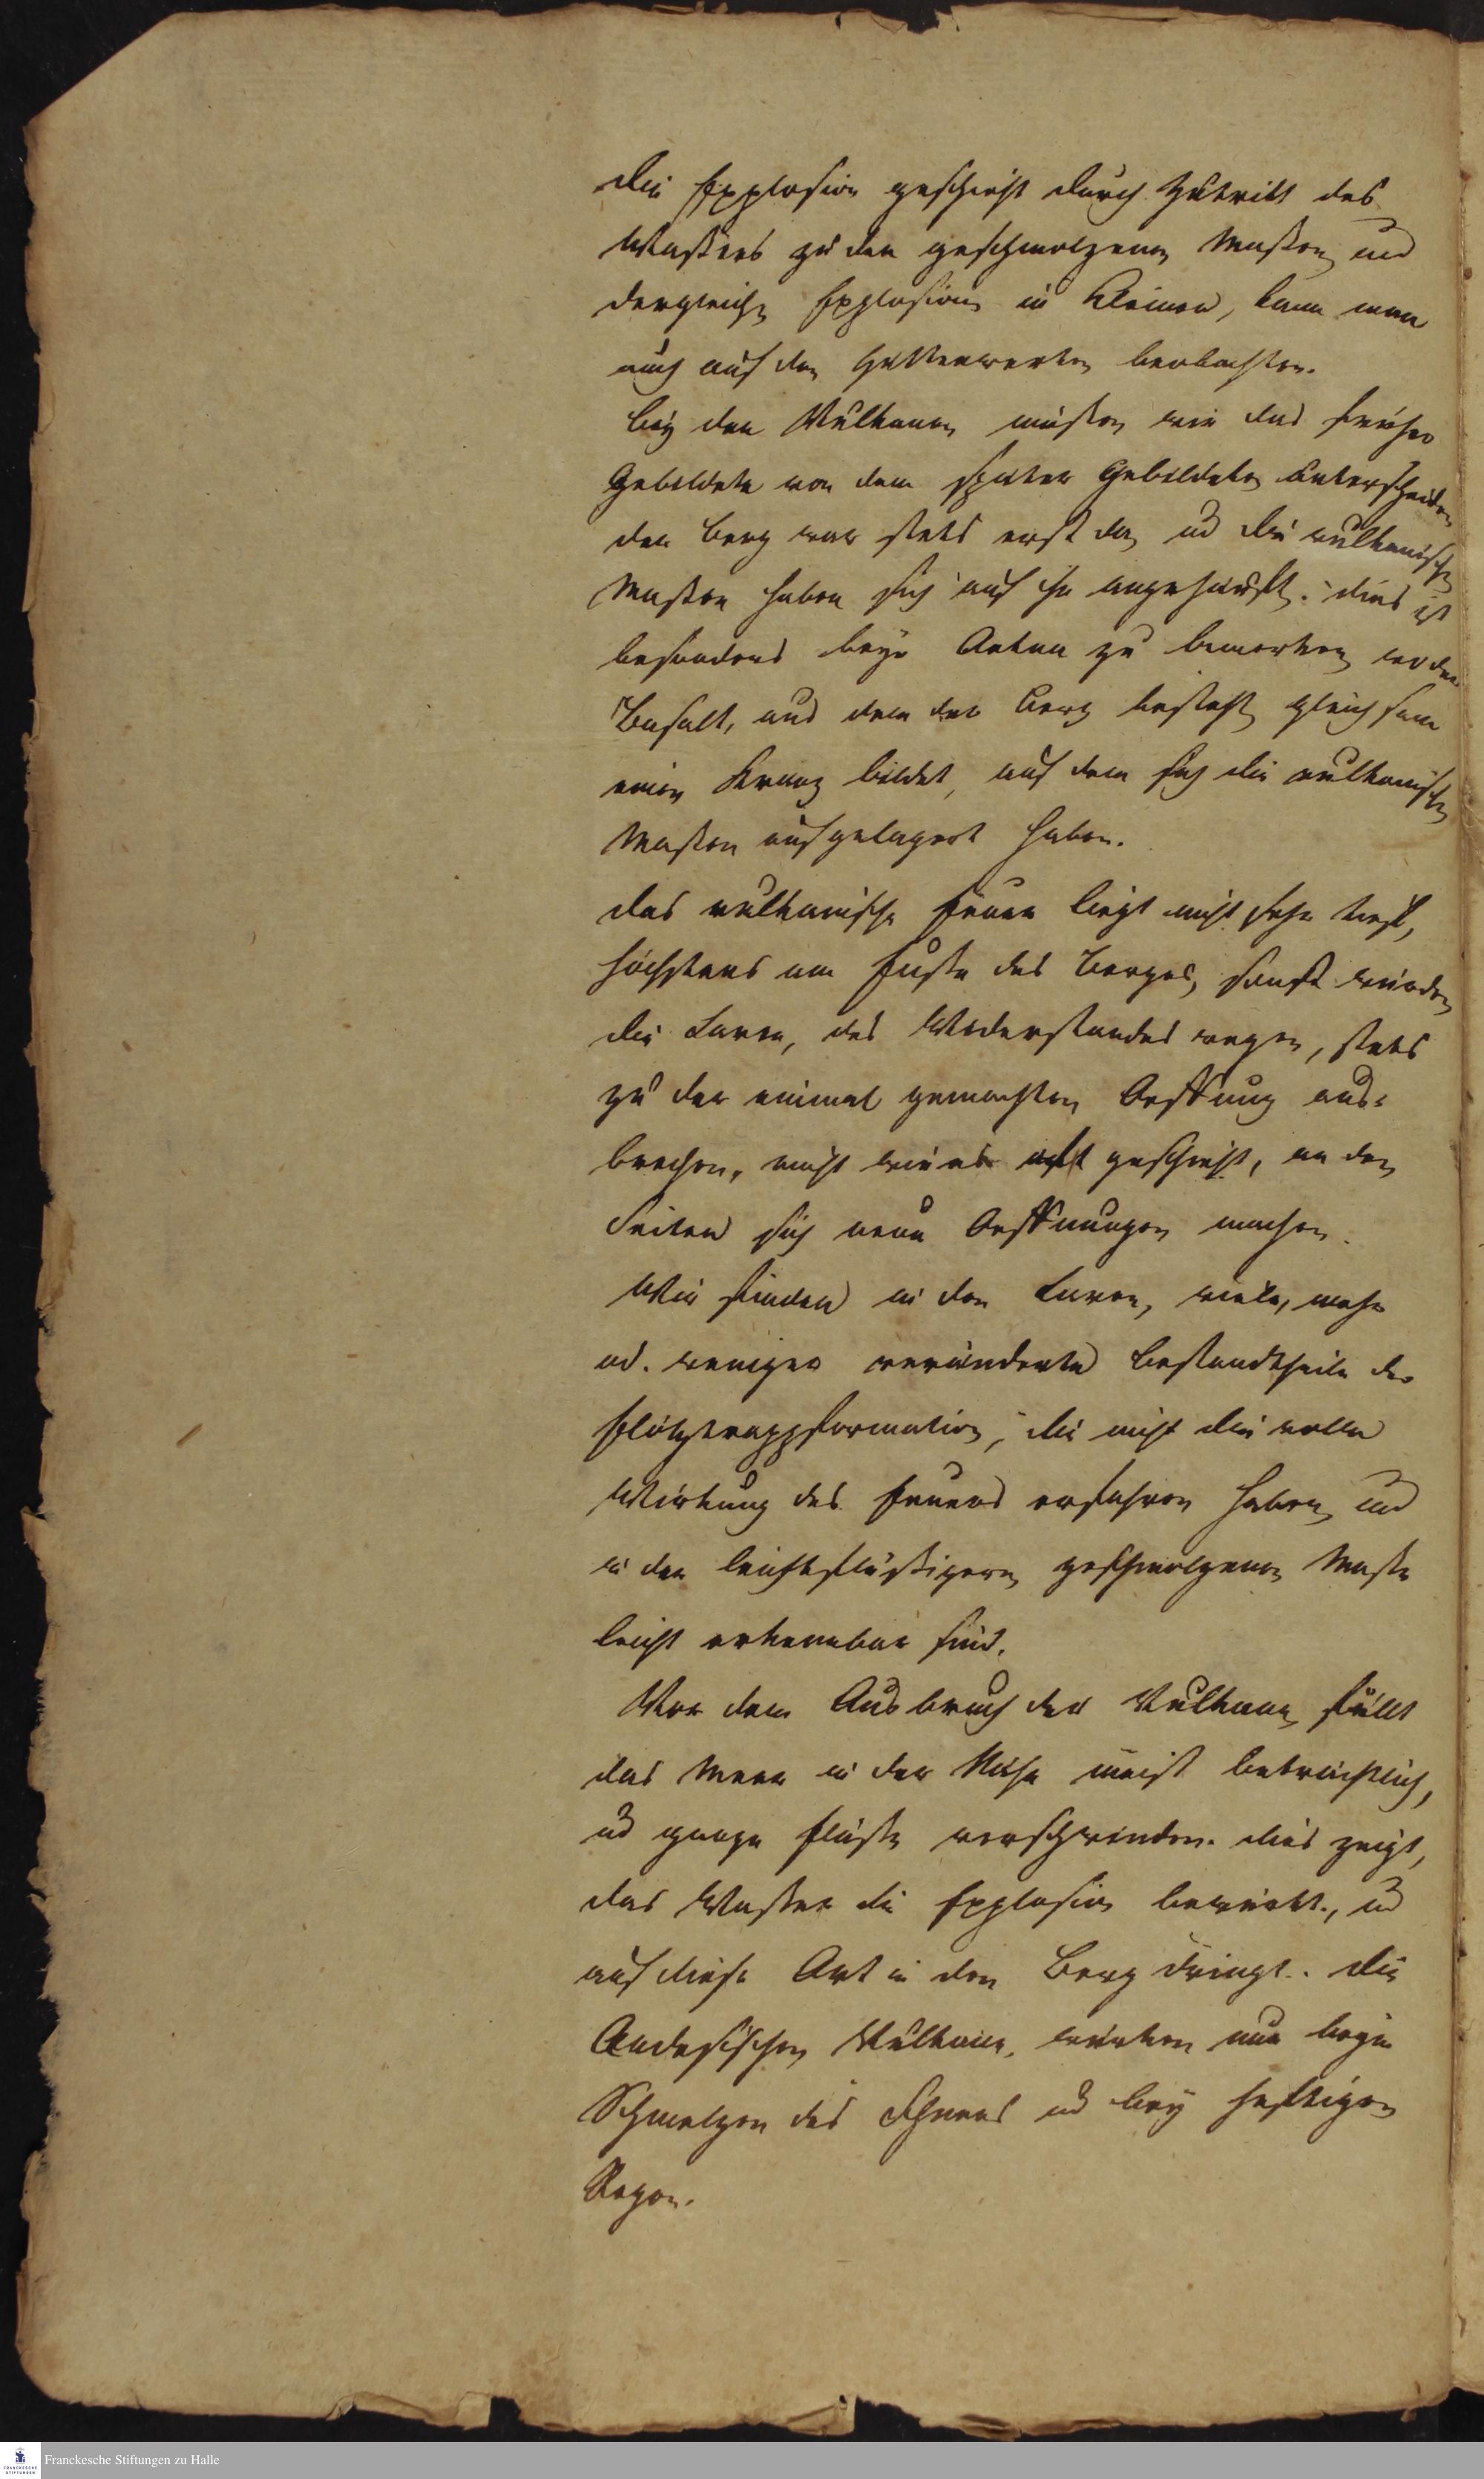 die Explosion geschieht durch Zutritt des
Waßers zu den geschmolzenen Maßen und
dergleichen Explosion im Kleinen, kann man
auch auf den Hüttenwerken beobachten.
bey den Vulkanen müßen wir das früher
Gebildete von dem später Gebildeten unterscheiden
der Berg war stets erst da, und die vulkanischen
Maßen haben sich auf ihn angehäuft. dies ist
besonders beym Aetna zu bemerken, wo der
Basalt, aus dem der Berg besteht, gleichsam
einen Kranz bildet, auf dem sich die vulkanischen
Maßen aufgelagert haben.
das vulkanische Feuer liegt nicht sehr tief,
höchstens am Fuße des Berges, sonst würden
die Laven, des Widerstandes wegen, stets
zu der einmal gemachten Oeffnung aus-
brechen, nicht wie es oft geschieht, an den
Seiten sich neue Oeffnungen machen.
Wir finden in den Laven, viele, mehr
od. weniger veränderte Bestandtheile der
Flötztrappformation, die nicht die volle
Wirkung des Feuers erfahren haben, und
in der leichtflüßigern geschmolzenen Maße
leicht erkennbar sind.
Vor dem Ausbruch der Vulkane, fällt
das Meer in der Nähe meist beträchtlich,
und ganze Flüße verschwinden. dies zeigt,
das Waßer die Explosion bewirkt, und
auf diese Art in den Berg dringt. die
Andesischen Vulkane, wirken nur beym
Schmelzen des Schnees und bey heftigen
Regen.
Franckesche Stiftungen zu Halle